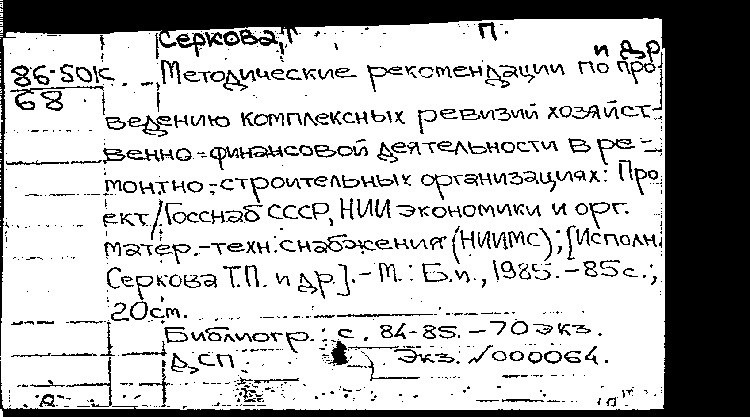 Серкова, Т. П.
и др
86-50К
68
Методические рекомендации по про-
ведению комплексных ревизий хозяйст-
венно-финансовой деятельности в ре-
монтно-строительных организациях: Про
ект/Госснаб СССР, НИИ экономики и орг.
матер.-техн. снабжения (НИИМС); [Исполн.
Серкова Т.П. и др]. - М.: Б.и., 1985. - 85 с.;
20 cm.
Библиогр.: с. 84-85. - 70 экз.
ДСП Экз. №000064.